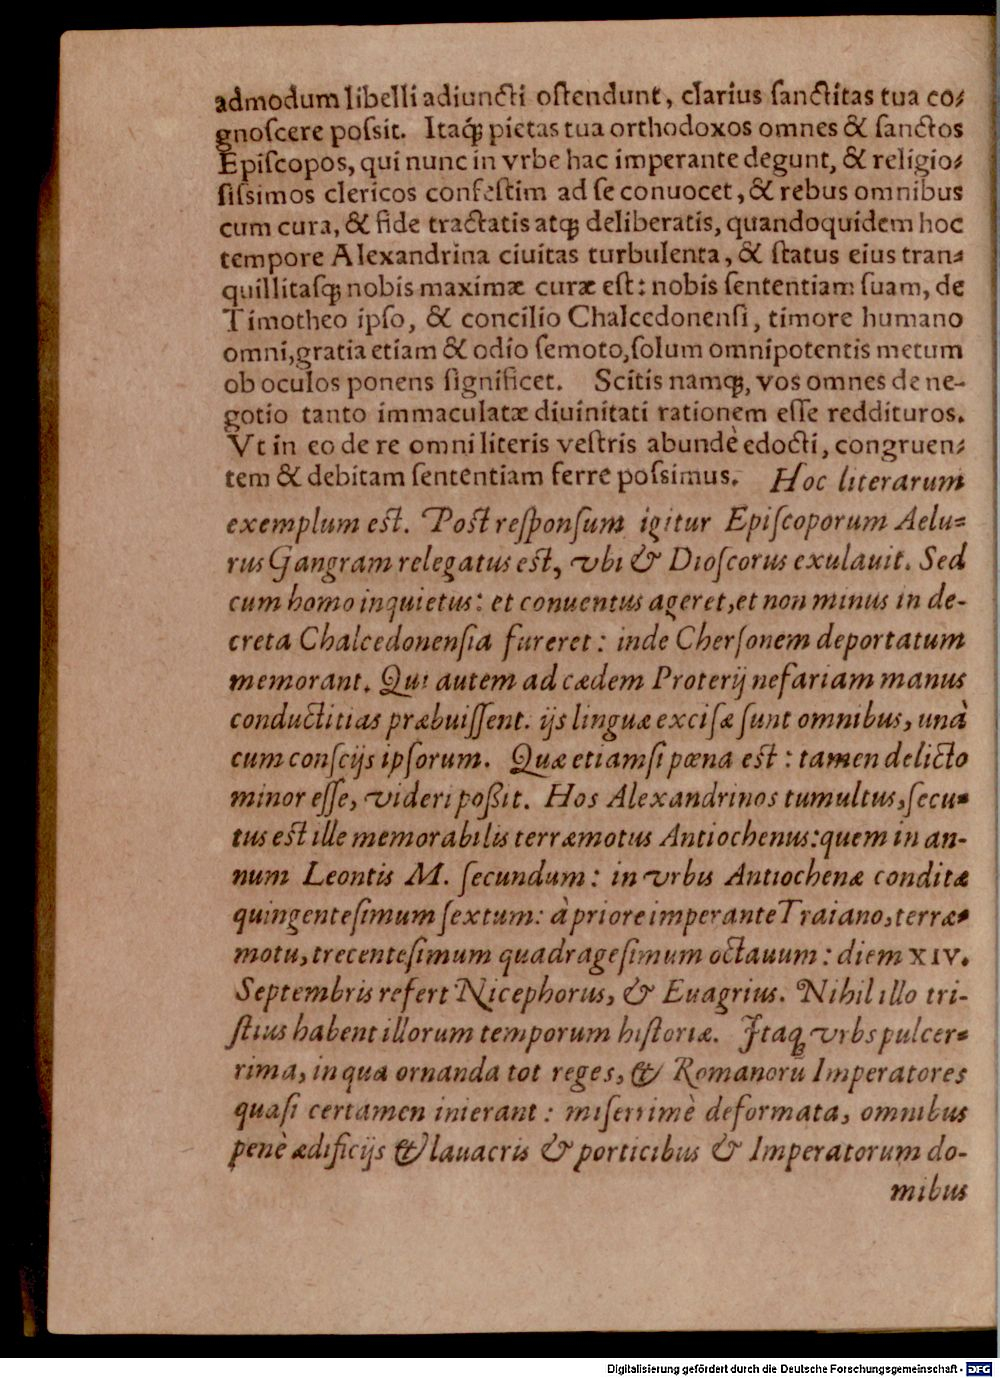 admodum libelli adiuncti oſtendunt, clarius ſanctitas tua co⸗
gnoſcere poſsit. Itaq́ꝫ pietas tua orthodoxos omnes & ſanctos
Epiſcopos, qui nunc in vrbe hac imperante degunt, & religio⸗
ſiſsimos clericos confeſtim ad ſe conuocet, & rebus omnibus
cum cura, & fide tractatis atqꝫ deliberatis, quandoquidem hoc
tempore Alexandrina ciuitas turbulenta, & ſtatus eius tran⸗
quillitaſqꝫ nobis maximæ curæ eſt: nobis ſententiam ſuam, de
Timotheo ipſo, & concilio Chalcedonenſi, timore humano
omni, gratia etiam & odio ſemoto, ſolum omnipotentis metum
ob oculos ponens ſignificet. Scitis namqꝫ, vos omnes de ne-
gotio tanto immaculatæ diuinitati rationem eſſe reddituros.
Vt in eo de re omni literis veſtris abundè edocti, congruen⸗
tem & debitam ſententiam ferre poſsimus. Hoc literarum
exemplum eſt. Poſt reſponſum igitur Epiſcoporum Aelu⸗
rus Gangram relegatus eſt, vbi & Dioſcorus exulauit. Sed
cum homo inquietus: et conuentus ageret, et non minus in de-
creta Chalcedonenſia fureret: inde Cherſonem deportatum
memorant. Qui autem ad cædem Proterij nefariam manus
conductitias præbuiſſent. ijs linguæ exciſæ ſunt omnibus, unà
cum conſcijs ipſorum. Quæ etiamſi pœna eſt: tamen delicto
minor eſſe, videri poßit. Hos Alexandrinos tumultus, ſecu⸗
tus eſt ille memorabilis terræmotus Antiochenus: quem in an-
num Leontis M. ſecundum: in vrbis Antiochenæ conditæ
quingenteſimum ſextum: à priore imperante Traiano, terræ⸗
motu, trecenteſimum quadrageſimum octauum: diem XIV.
Septembris refert Nicephorus, & Euagrius. Nihil illo tri-
ſtius habent illorum temporum hiſtoriæ. Itaqꝫ vrbs pulcer⸗
rima, in qua ornanda tot reges, & Romanorū Imperatores
quaſi certamen inierant: miſerrimè deformata, omnibus
penè ædificijs & lauacris & porticibus & Imperatorum do-
mibus
Digitalisierung gefördert durch die Deutsche Forschungsgemeinschaft - DFG